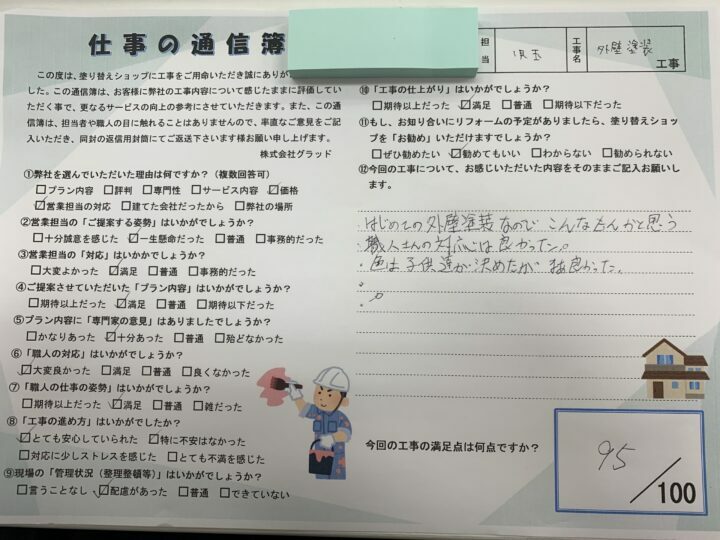 仕事の通信簿
担当
埼玉
工事名
外壁塗装
工事
この度は、塗り替えショップに工事をご用命いただき誠にありが
した。この通信簿は、お客様に弊社の工事内容について感じたままに評価してい
ただく事で、更なるサービスの向上の参考にさせていただきます。また、この通
信簿は、担当者や職人の目に触れることはありませんので、率直なご意見をご記
入いただき、同封の返信用封筒にてご返送下さいます様お願い申し上げます。
株式会社グラッド
①弊社を選んでいただいた理由は何ですか？（複数回答可）
□プラン内容 □評判 □専門性 □サービス内容 ☑価格
☑営業担当の対応 □建てた会社だったから □弊社の場所
②営業担当の「ご提案する姿勢」はいかがでしょうか？
□十分誠意を感じた ☑一生懸命だった □普通 □事務的だった
③営業担当の「対応」はいかかでしょうか？
□大変よかった ☑満足 □普通 □事務的だった
④ご提案させていただいた「プラン内容」はいかがでしょうか？
□期待以上だった ☑満足 □普通 □期待以下だった
⑤プラン内容に「専門家の意見」はありましたでしょうか？
□かなりあった ☑十分あった □普通 □殆どなかった
⑥「職人の対応」はいかがでしょうか？
☑大変良かった □満足 □普通 □良くなかった
⑦「職人の仕事の姿勢」はいかがでしょうか？
□期待以上だった ☑満足 □普通 □雑だった
⑧「工事の進め方」はいかがでしょうか？
☑とても安心していられた ☑特に不安はなかった
□対応に少しストレスを感じた □とても不満を感じた
⑨現場の「管理状況（整理整頓等）」はいかがでしょうか？
□言うことなし ☑配慮があった □普通 □できていない
⑩「工事の仕上がり」はいかがでしょうか？
□期待以上だった ☑満足 □普通 □期待以下だった
⑪もし、お知り合いにリフォームの予定がありましたら、塗り替えショッ
プを「お勧め」いただけますでしょうか？
□ぜひ勧めたい ☑勧めてもいい □わからない □勧められない
⑫今回の工事について、お感じいただいた内容をそのままご記入お願いし
ます。
・はじめての外壁塗装なのでこんなもんかと思う
・職人さんの対応は良かった。
・色は子供達が決めたが 良かった。
今回の工事の満足点は何点ですか？
95/100